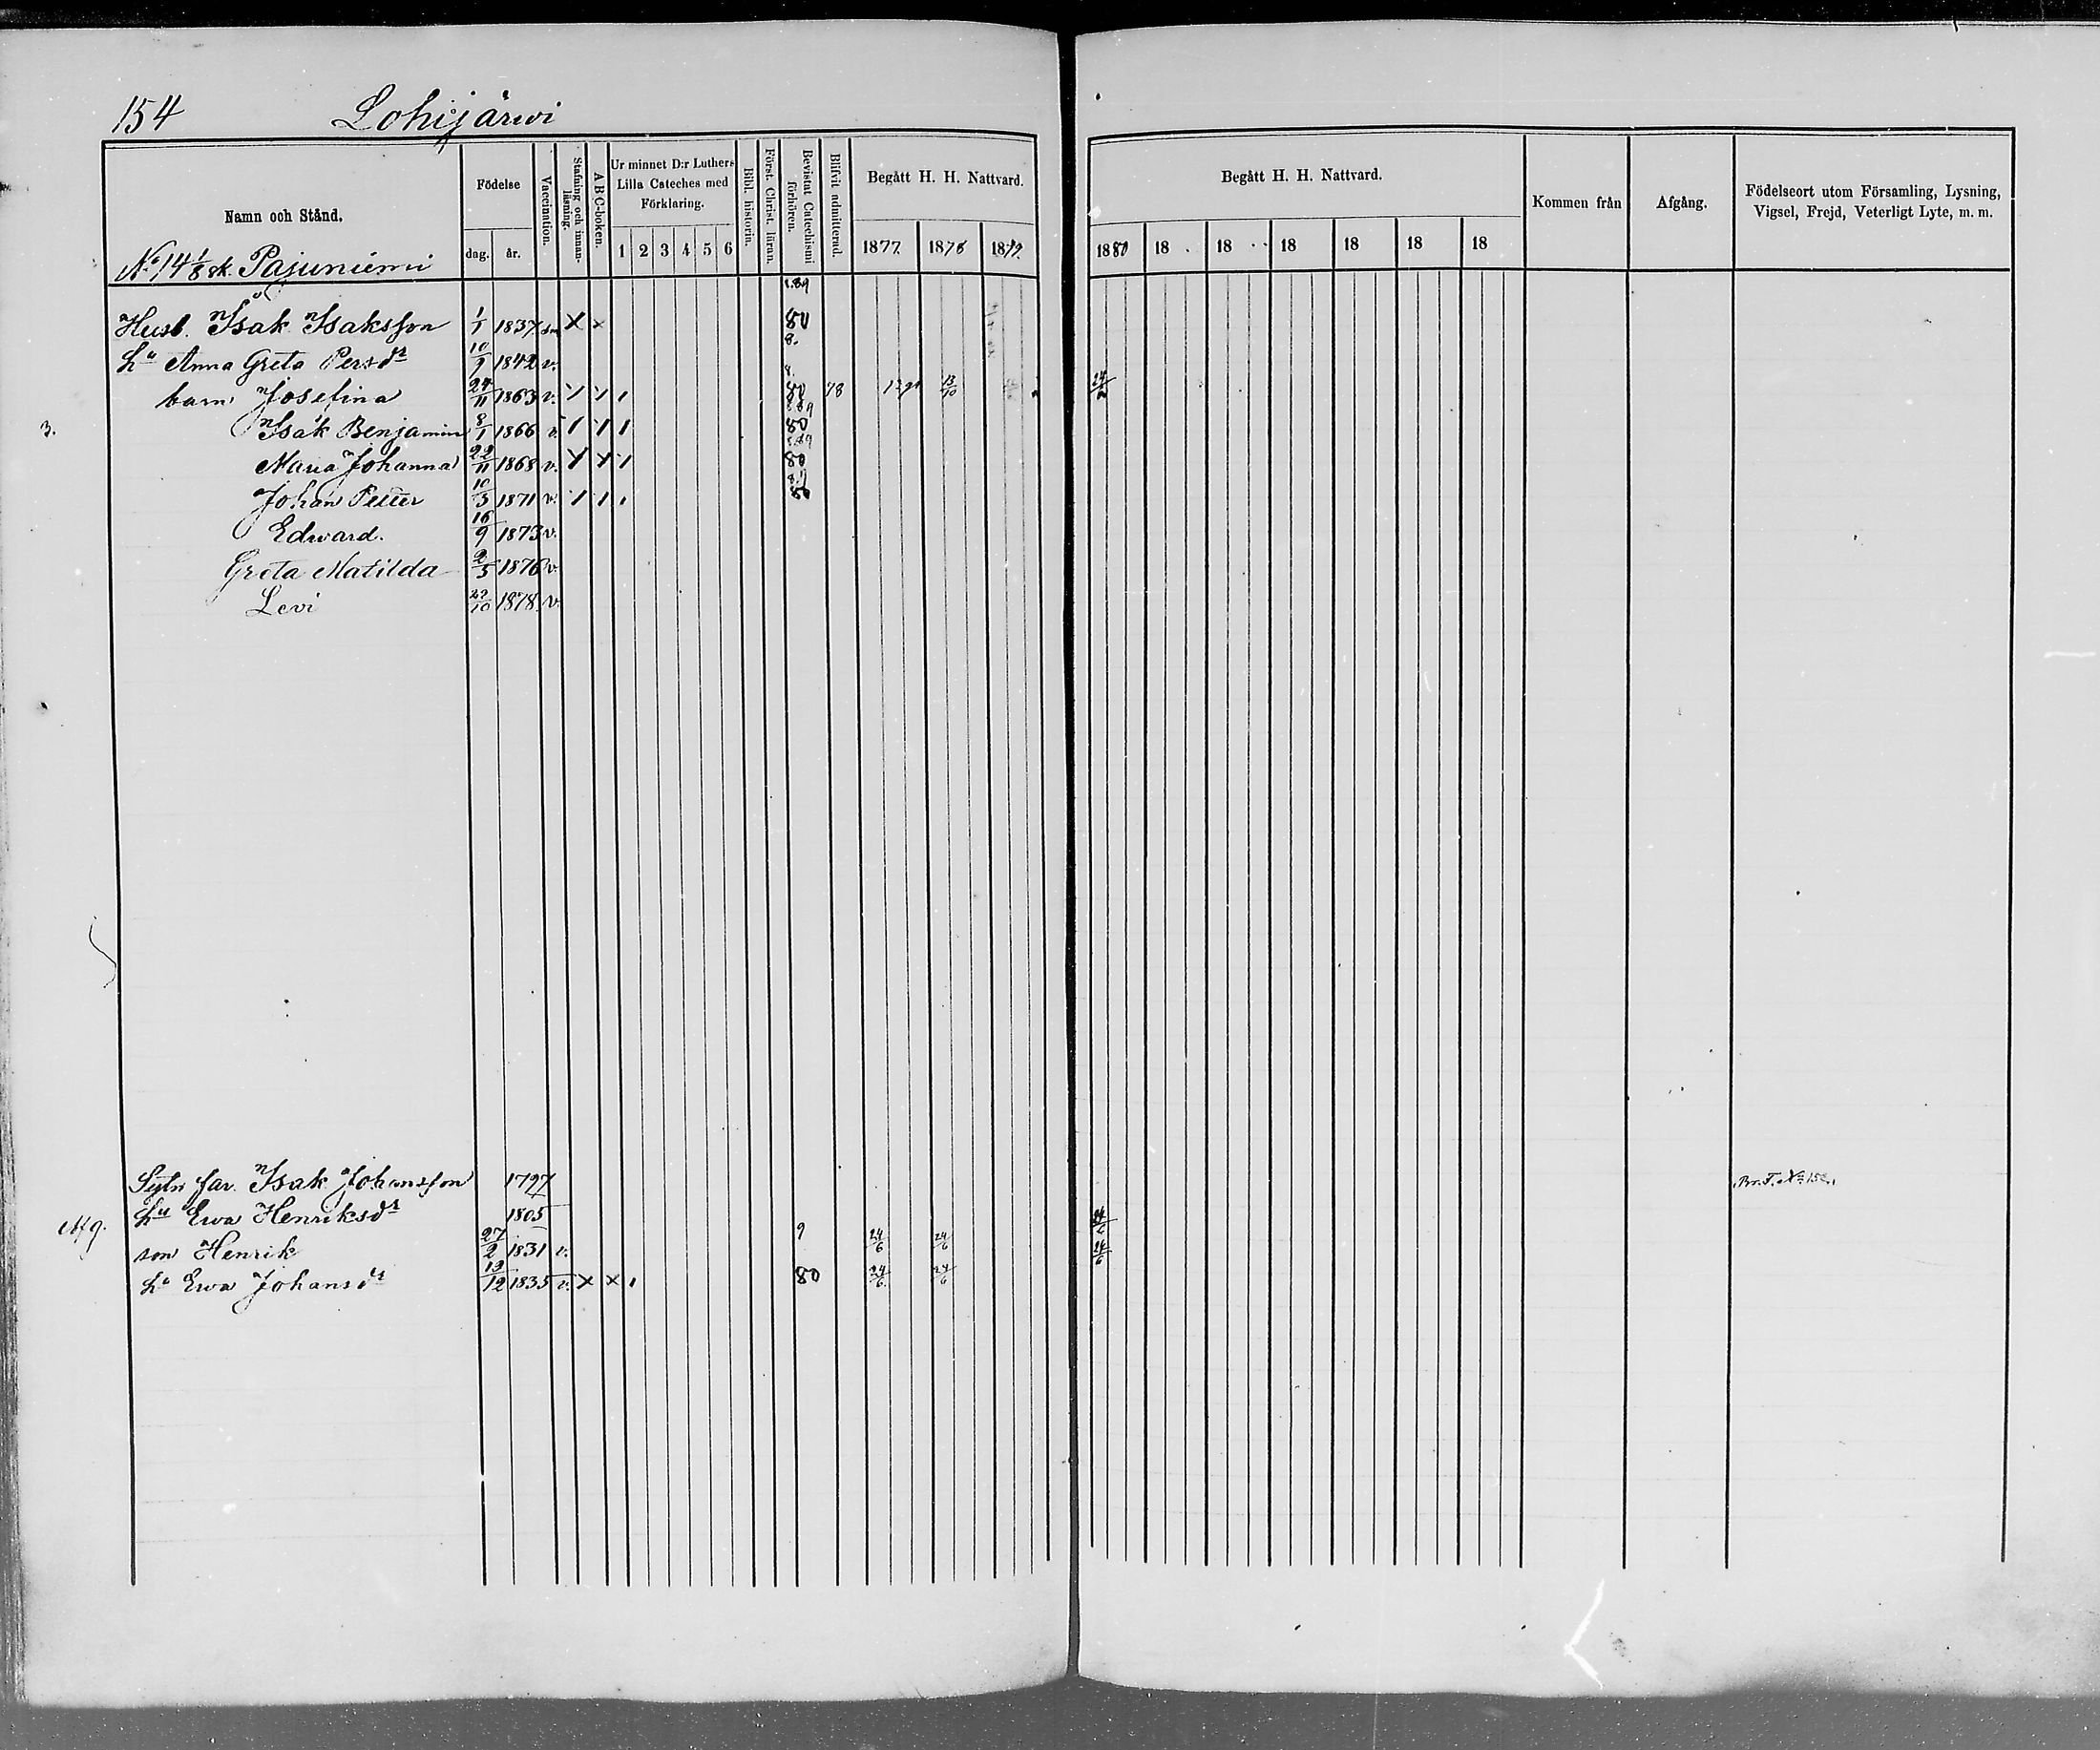 154 Lohijärwi
Namn och Stånd.
Födelse
dag. år.
Vaccination.
Stafning och innanläsning.
A B C-boken.
Ur minnet D:r Luthers Lilla Cateches med Förklaring.
1 2 3 4 5 6
Bibl. historin.
Först. Christ. läran.
Bevistat Catechismi förhören.
Blifvit admitterad.
Begått H. H. Nattvard.
1877. 1878 1879.
Begått H. H. Nattvard.
1880 18 18 18 18 18 18
Kommen från
Afgång.
Födelseort utom Församling, Lysning, Vigsel, Frejd, Veterligt Lyte, m. m.
No 14 1/8 sk. Pajuniemi
Husb. Isak Isaksson 1/1 1837 sm X x 80
hu Anna Greta Persdr 10/9 1842 v.
barn Josefina 24/11 1863 v. 80 78 13/10 24/2
3. Isak Benjamin 8/1 1866 v. 80
Maria Johanna 22/11 1868 v. 80
Johan Petter 10/3 1871 v. 80
Edward. 16/9 1873 v.
Greta Matilda 2/5 1876 v.
Levi 22/10 1878. v.
Sytn. far. Isak Johansson 1797
hu Ewa Henriksdr 1805
son Henrik 27/2 1831 v. 9 24/6 24/6 24/6
hu Ewa Johansdr 13/12 1835 v. x x 80 24/6. 24/6 24/6